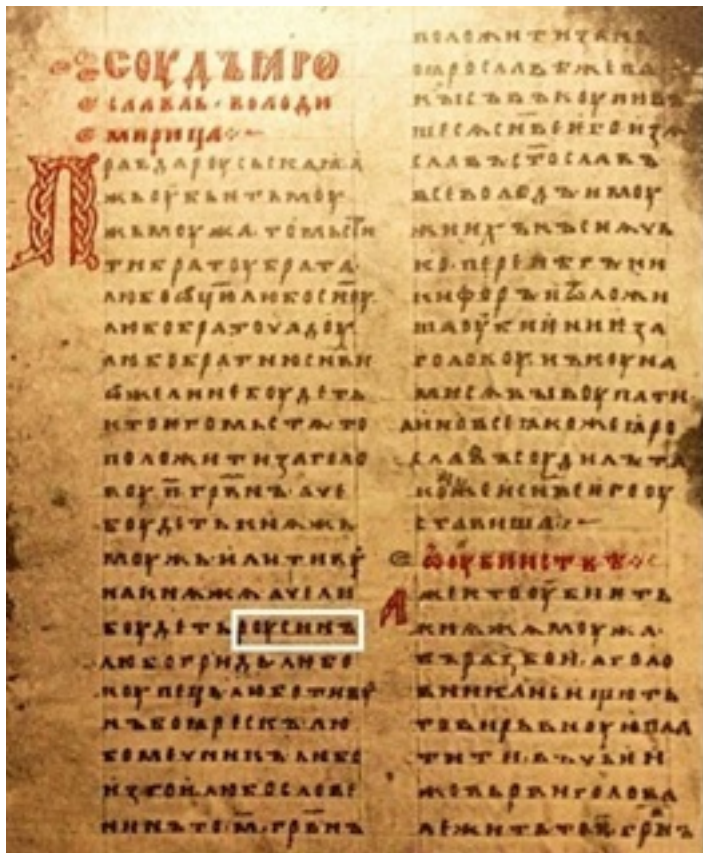 СОУДЪ ꙖРО
СЛАВЛЬ · ВОЛОДИ
МИРИЦА
Правдароусьскаꙗ · а
жьоубьитьмоу
жьмоужа · томьсти
тибратоубрата
любоѡц҃илюбосн҃оу
любобратоучадоу
любобратнюсн҃ви
ѡжелиинебоудеть
ктоѥгомьстѧто
положитизаголо
воуп҃грв҃нъ · аче
боудетькнѧжь
моужь · илитиву
накнѧжѧачели
боудетьроусинъ
любогридь · любо
коупець · люботиву
нъбоꙗрескъ · лю
бомечникълюбо
изгоилюбослове
нинъто · м҃ · грв҃нъ
положитизань
поꙗрославѣжепа
кысъвъкоупивъ
шесѧсн҃овеѥгоизѧ
славъст҃ославъ
всеволодъимоу
жиихъкъснѧчь
ко · перенѣгъни
кифоръиѿложи
шаоубиѥниѥза
головоу · нъкоуна
мисѧвыкоупати
аиновсеꙗкожеꙗро
славъсоудилъта
кожеисн҃веѥгооу
ставиша
ѡоубииствѣ
Ажектооубиѥть
кнѧжѧмоужа ·
въразбои · аголо
вниканеищють
товирьвноуюпла
тити · въчьѥи
жевьрвиголова
лежитьто · п҃ · грв҃нъ